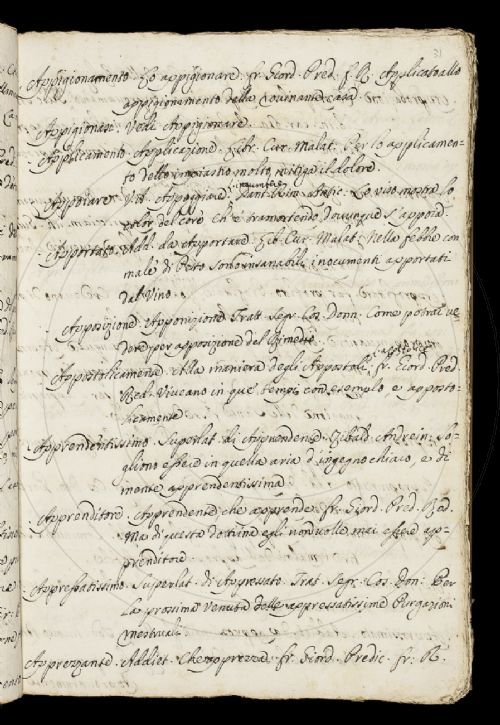 31
Appigionamento. Lo appigionare. fr. Giord. Pred. f. R. Applicato allo
appigionamento della rovinante casa.
Appigionasi. Vedi Appigionare.
Applicamento. Applicazione. Libr. Cur. Malat. Per lo applicamen-
to dello impiastro molto mitiga il dolore.
Appoiare. Vit. Appoggiare. Dant. Rim. Antic. Lo viso mostra lo
color del core, Ch' è tramortendo dovunque s' appoia.
Apportato. Add. da Apportare. Lib. Cur. Malat. Nella febbre con
male di Petto sono insanabili i nocumenti apportati
dal Vino.
Apposizione. Apponizione. Tratt. Segr. Cos. Donn. Come potrai ve-
dere per apposizione del Rimedio.
Appostolicamente. Alla maniera degli Appostoli. fr. Giord. Pred.
Red. Viveano in que' tempi con esemplo e apposto-
licamente.
Apprendentissimo. Superlat. di Apprendente. Zibald. Andrein. So-
gliono essere in quella aria d' ingegno chiaro, e di
mente apprendentissima.
Apprenditore. Apprendente, che apprende. fr. Giord. Pred. Red.
Ma di questa dottrina egli non volle mai essere ap-
prenditore.
Appressatissimo. Superlat. di Appressato. Trat. Segr. Cos. Don. Per
la prossima venuta delle appressatissime Purgazion.
mestruali.
Apprezzante. Addiet. Che apprezza. fr. Giord. Predic. fr. R.